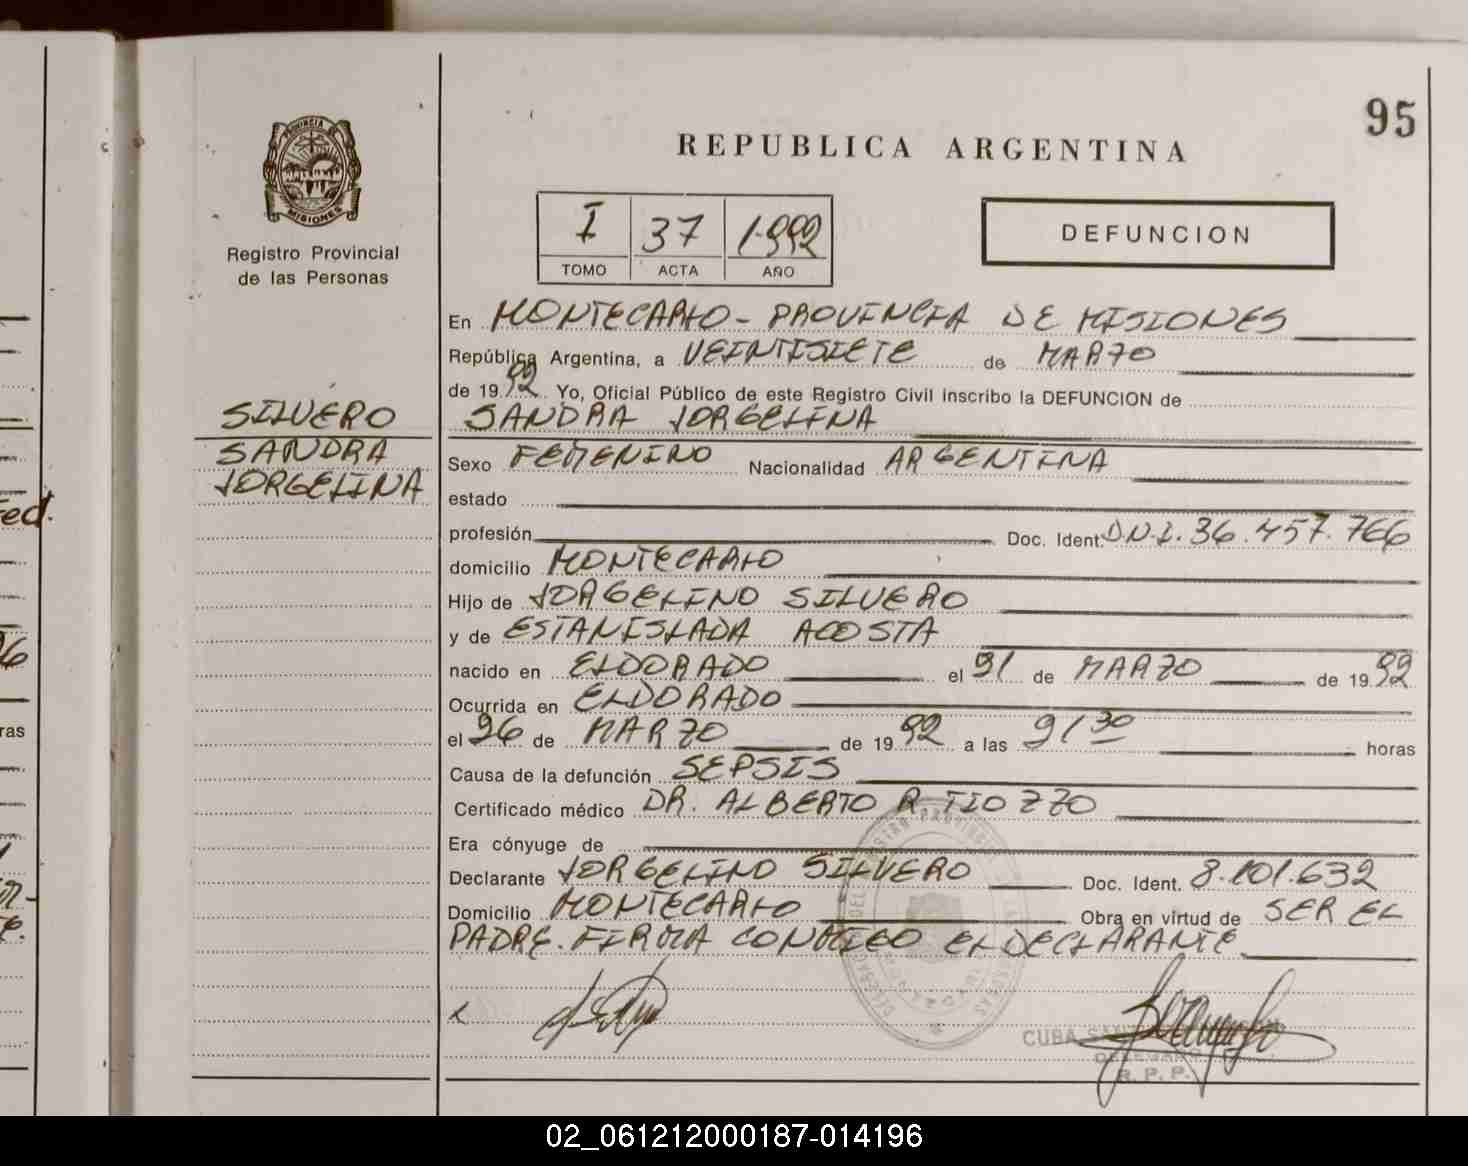 95
PROVINCIA DE
MISIONES
Registro Provincial
de las Personas
REPUBLICA ARGENTINA
I 37 1.992
TOMO ACTA AÑO
DEFUNCION
En MONTECARLO - PROVINCIA DE MISIONES
República Argentina, a VEINTISIETE de MARZO
de 1992 Yo, Oficial Público de este Registro Civil inscribo la DEFUNCION de
SILVERO
SANDRA
JORGELINA
SANDRA JORGELINA
Sexo FEMENINO Nacionalidad ARGENTINA
estado
profesión Doc. Ident. D.N.I. 36.457.766
domicilio MONTECARLO
Hijo de JORGELINO SILVERO
y de ESTANISLADA ACOSTA
nacido en ELDORADO el 21 de MARZO de 1992
Ocurrida en ELDORADO
el 26 de MARZO de 1992 a las 21 30 horas
Causa de la defunción SEPSIS
Certificado médico DR. ALBERTO R TIOZZO
Era cónyuge de
Declarante JORGELINO SILVERO Doc. Ident. 8.101.632
Domicilio MONTECARLO Obra en virtud de SER EL
PADRE. FIRMA CONMIGO EL DECLARANTE
CUBA
R. P. P.
ed.
ras
02_061212000187-014196